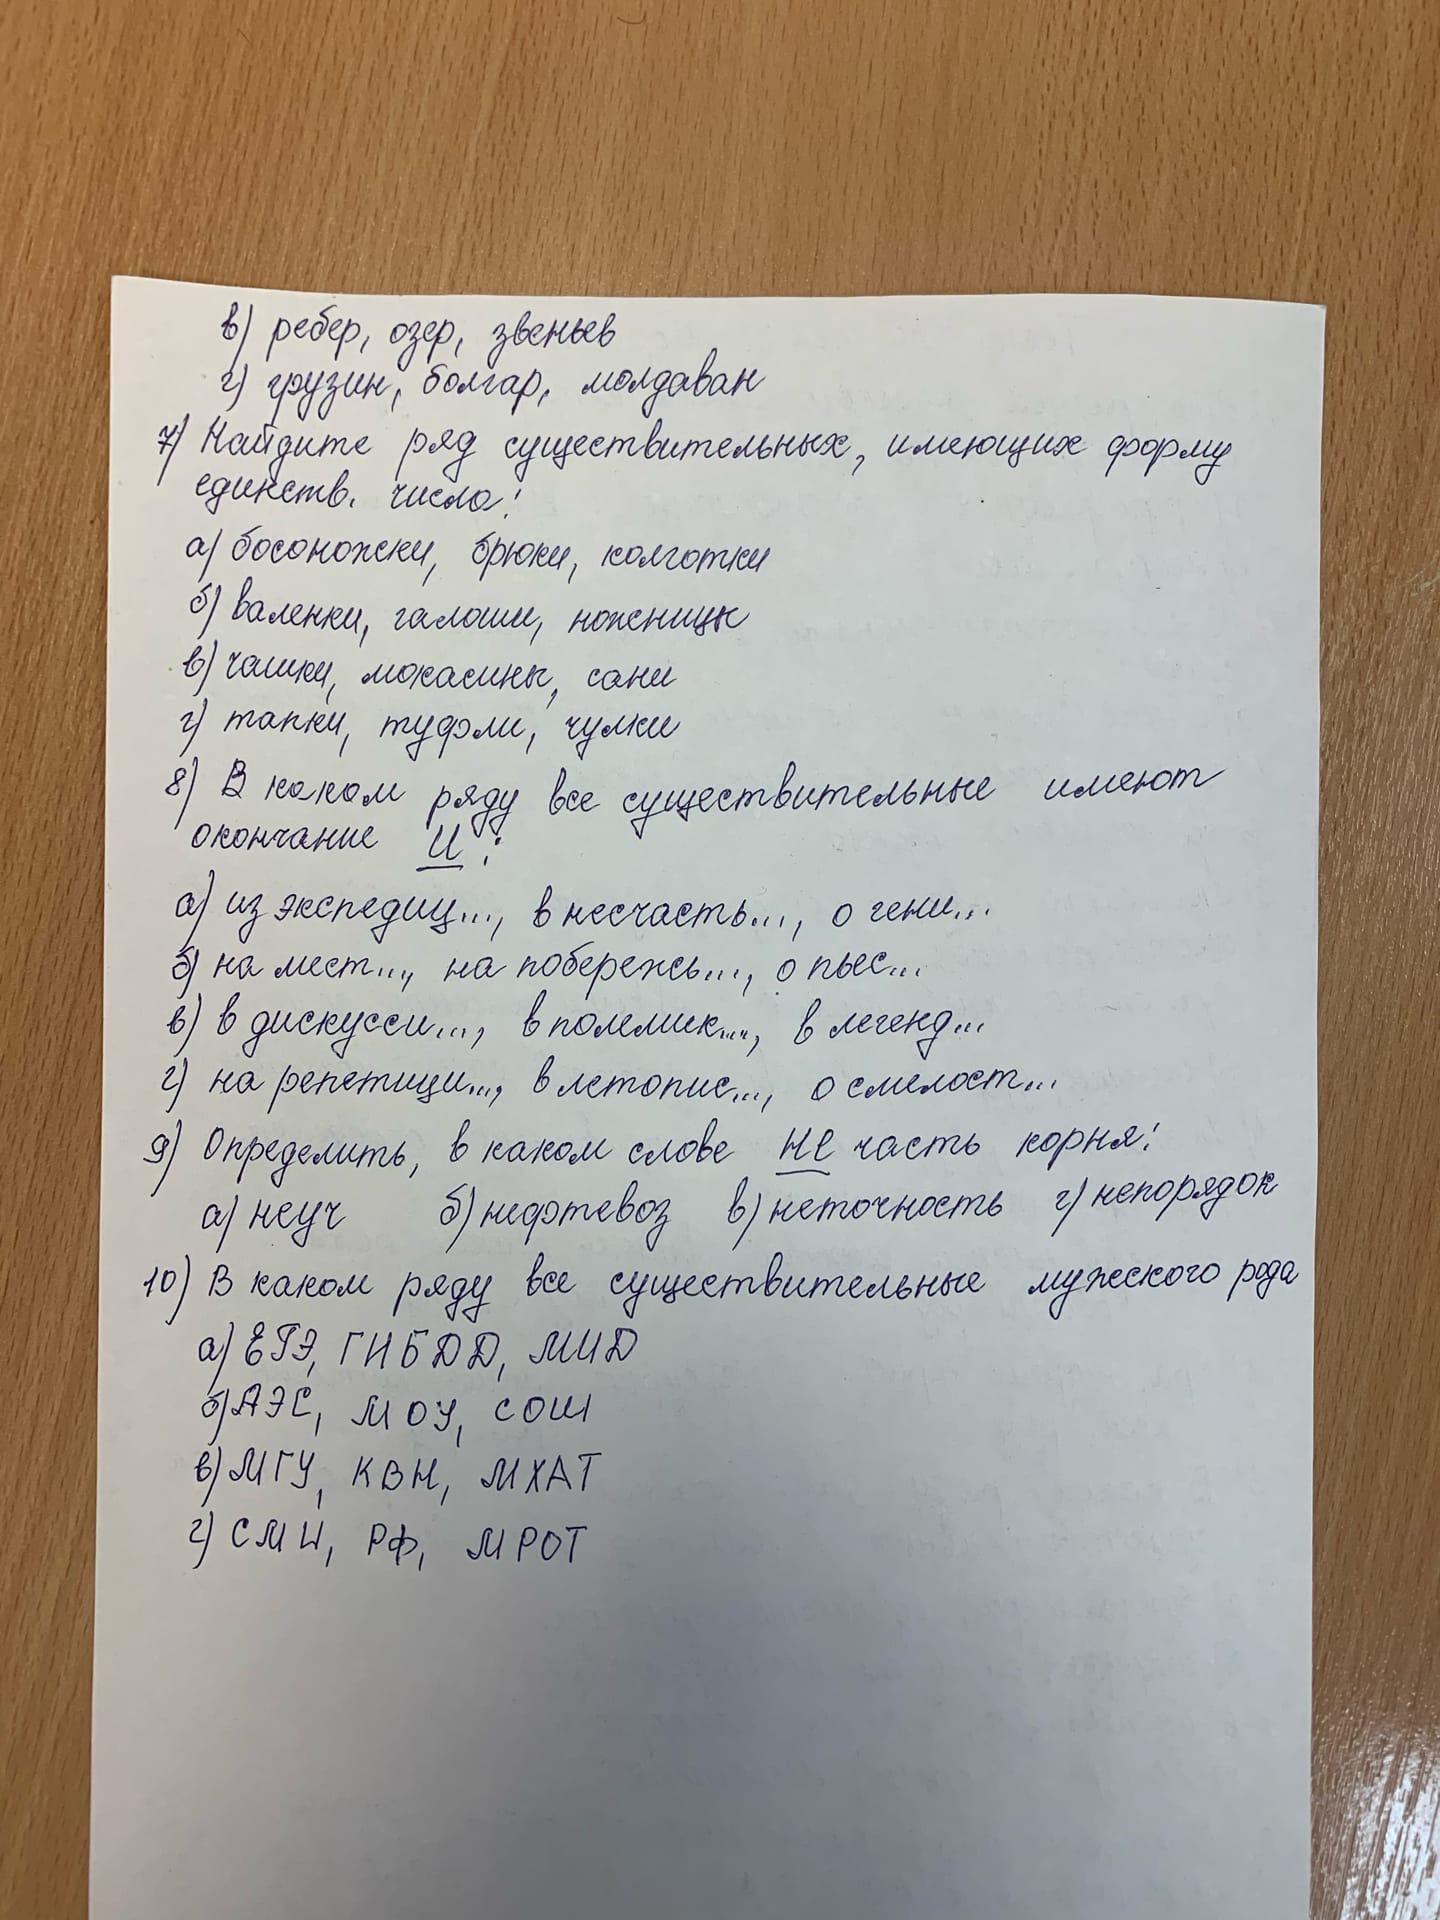 в) ребер, озер, звеньев
г) грузин, болгар, молдаван
7) Найдите ряд существительных, имеющих форму
единств. числа:
а) босоножки, брюки, колготки
б) валенки, галоши, ножницы
в) чашки, мокасины, сани
г) тапки, туфли, чулки
8) В каком ряду все существительные имеют
окончание И:
а) из экспедиц..., в несчасть..., о гени...
б) на мест..., на побережь..., о пьес...
в) в дискусси..., в полемик..., в легенд...
г) на репетици..., в летопис..., о смелост...
9) Определить, в каком слове НЕ часть корня:
а) неуч б) нефтевоз в) неточность г) непорядок
10) В каком ряду все существительные мужского рода
а) ЕГЭ, ГИБДД, МИД
б) АЭС, МОУ, СОШ
в) МГУ, КВН, МХАТ
г) СМИ, РФ, МРОТ